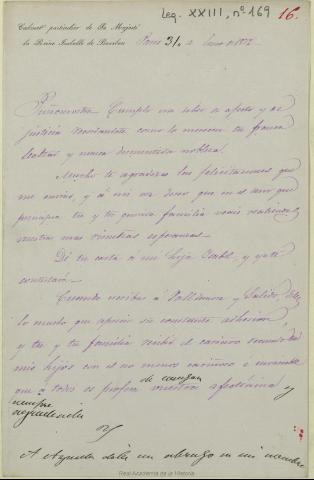 Leg. XXIII, nº 169
16.
Cabinet particulier de Sa Majesté
la Reine Isabelle de Bourbon
Paris 31 de Enero de 1872
Cumplo un deber de afecto y de
justicia como lo merece tu franca
lealtad y nunca desmentida nobleza.
Mucho te agradezco las felicitaciones que
me envias, y á mi vez deseo que en el año que
principia tu y tu querida familia veais realizadas
vuestras mas risueñas esperanzas.
Dí tu carta á mi hija Isabel, y ya te
contestará.
Cuando escribas á Valldemosa y Pulido diles
lo mucho que aprecio su constante adhesion,
y tu y tu familia recibid el cariñoso recuerdo de
mis hijos con el no menos cariñoso é invariable
que á todos os profesa vuestra afectisima y
de corazon
siempre
agradecida
Y
A dale un abrazo en mi nombre
Real Academia de la Historia